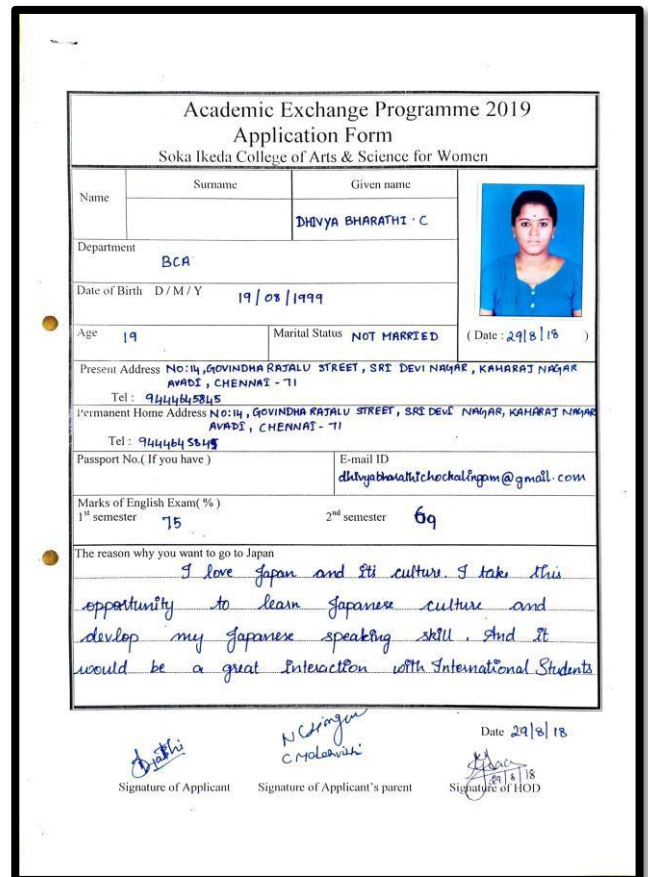 Academic Exchange Programme 2019
Application Form
Soka Ikeda College of Arts & Science for Women
Name
Surname
Given name
DHIVYA BHARATHI . C
Department
BCA
Date of Birth D / M / Y 19/08/1999
Age 19
Marital Status NOT MARRIED
( Date : 29/8/18 )
Present Address NO:14, GOVINDHA RAJALU STREET, SRI DEVI NAGAR, KAHARAJ NAGAR
AVADI, CHENNAI - 71
Tel : 9444645845
Permanent Home Address NO:14, GOVINDHA RAJALU STREET, SRI DEVI NAGAR, KAHARAJ NAGAR
AVADI, CHENNAI - 71
Tel : 9444645845
Passport No.( If you have )
E-mail ID
dhivyabharathichockalingam@gmail.com
Marks of English Exam( % )
1st semester 75
2nd semester 69
The reason why you want to go to Japan
I love Japan and its culture. I take this
opportunity to learn Japanese culture and
devlop my Japanese speaking skill. And it
would be a great interaction with International Students
Date 29/8/18
29/8/18
Signature of Applicant
Signature of Applicant's parent
Signature of HOD